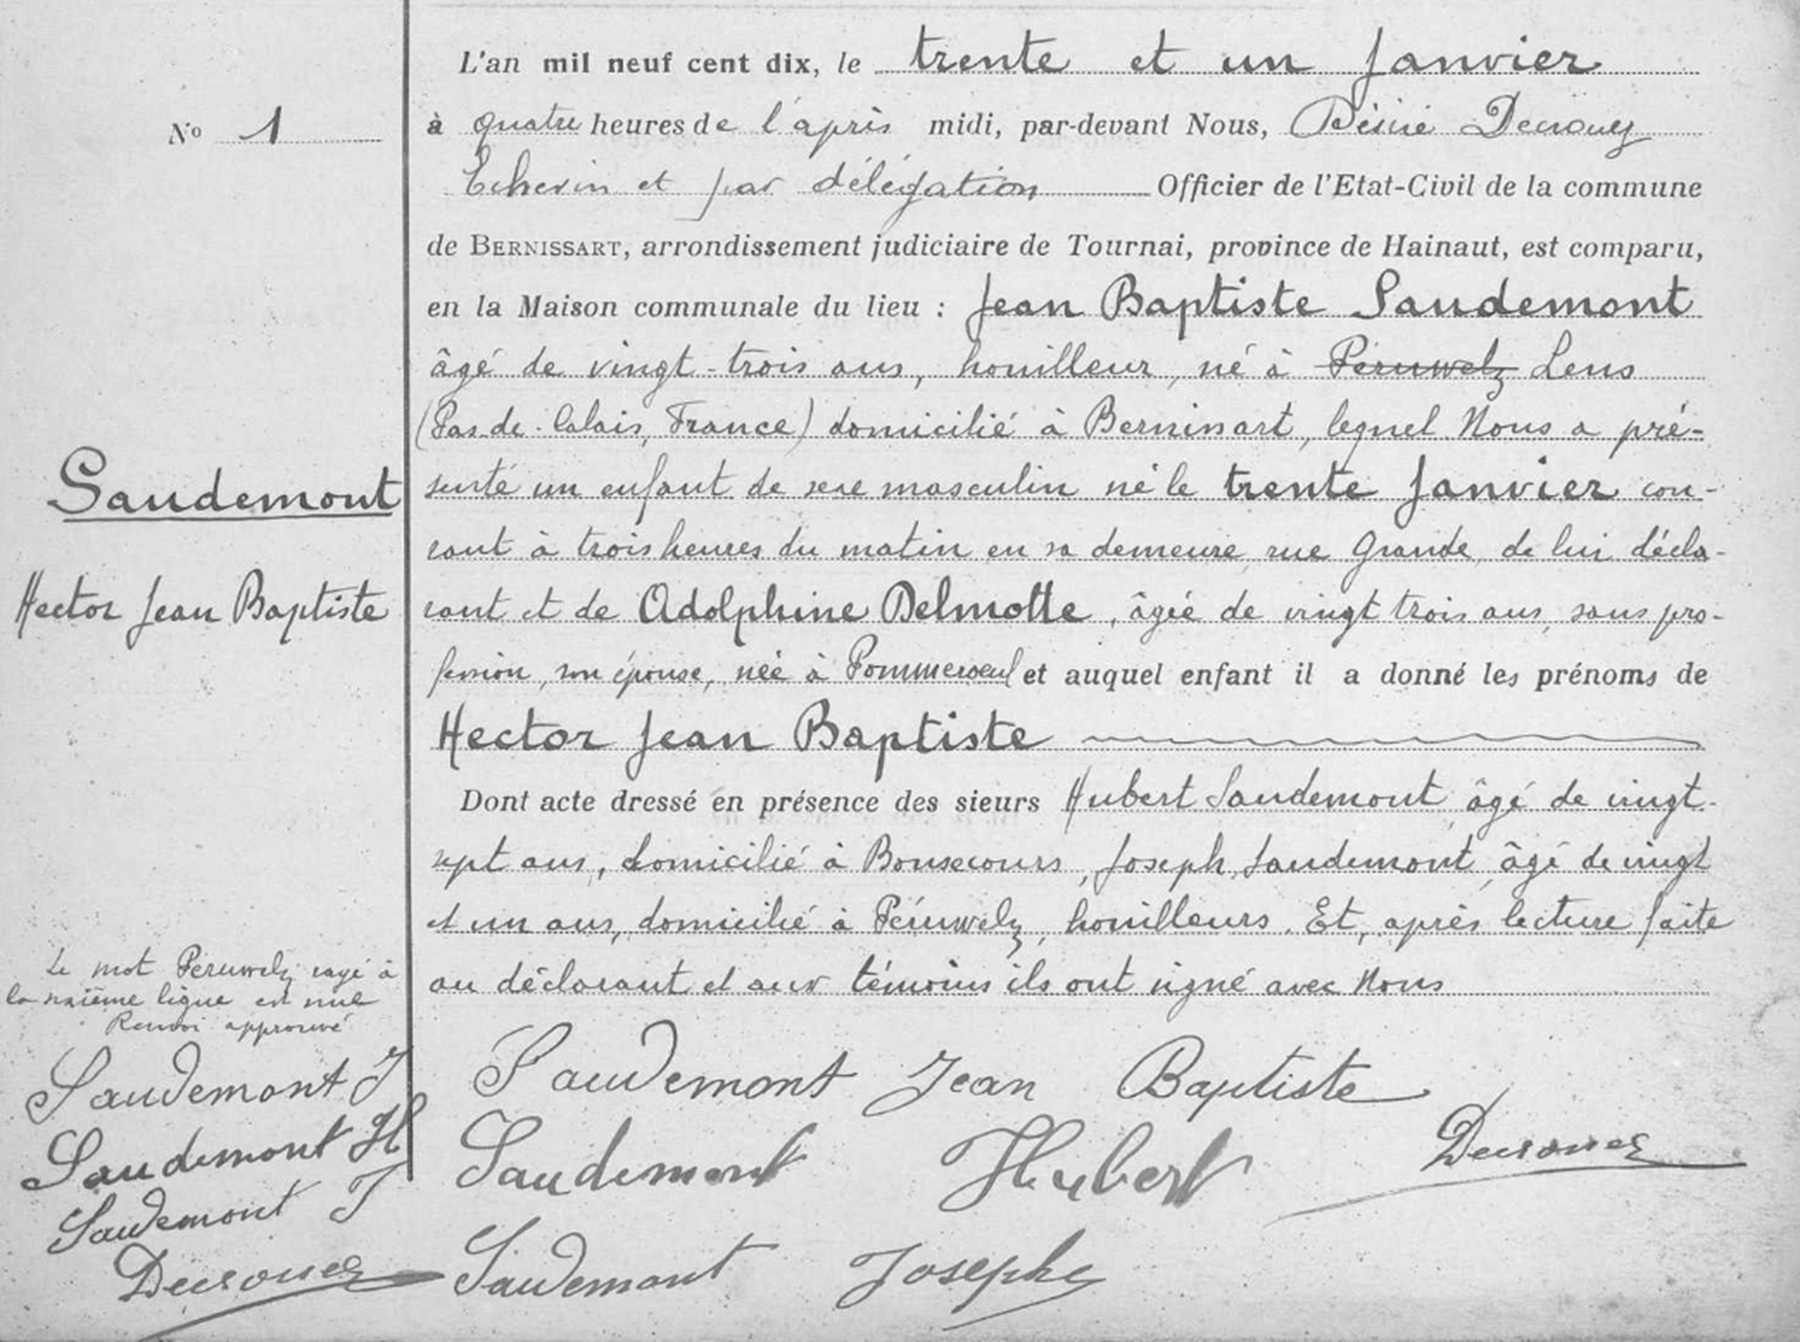 L'an mil neuf cent dix, le trente et un Janvier
N° 1
à quatre heures de l'après midi, par-devant Nous, Désiré Decrouez
Echevin et par délégation Officier de l'Etat-Civil de la commune
de BERNISSART, arrondissement judiciaire de Tournai, province de Hainaut, est comparu,
en la Maison communale du lieu : Jean Baptiste Saudemont
âgé de vingt-trois ans, houilleur, né à Péruwelz Lens
(Pas-de-Calais, France) domicilié à Bernissart, lequel Nous a pré-
senté un enfant de sexe masculin né le trente Janvier cou-
rant à trois heures du matin en sa demeure rue Grande, de lui décla-
rant et de Adolphine Delmotte, âgée de vingt trois ans, sans pro-
fession, son épouse, née à Pommeroeul et auquel enfant il a donné les prénoms de
Hector Jean Baptiste
Dont acte dressé en présence des sieurs Hubert Saudemont âgé de vingt-
sept ans, domicilié à Bonsecours, Joseph Saudemont âgé de vingt
et un ans, domicilié à Péruwelz, houilleurs. Et, après lecture faite
au déclarant et aux témoins ils ont signé avec Nous
Saudemont
Hector Jean Baptiste
Le mot Péruwelz rayé à
la sixième ligne est nul
Renvoi approuvé
Saudemont J
Saudemont H
Saudemont J
Decrouez
Saudemont Jean Baptiste
Saudemont Hubert
Decrouez
Saudemont Josephe